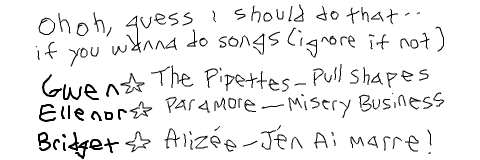 Ohoh, guess i should do that...
if you wanna do songs (ignore if not)
Gwen☆ The Pipettes - Pull Shapes
Ellenor☆ Paramore - Misery Business
Bridget☆ Alizée - J'én Ai marre!